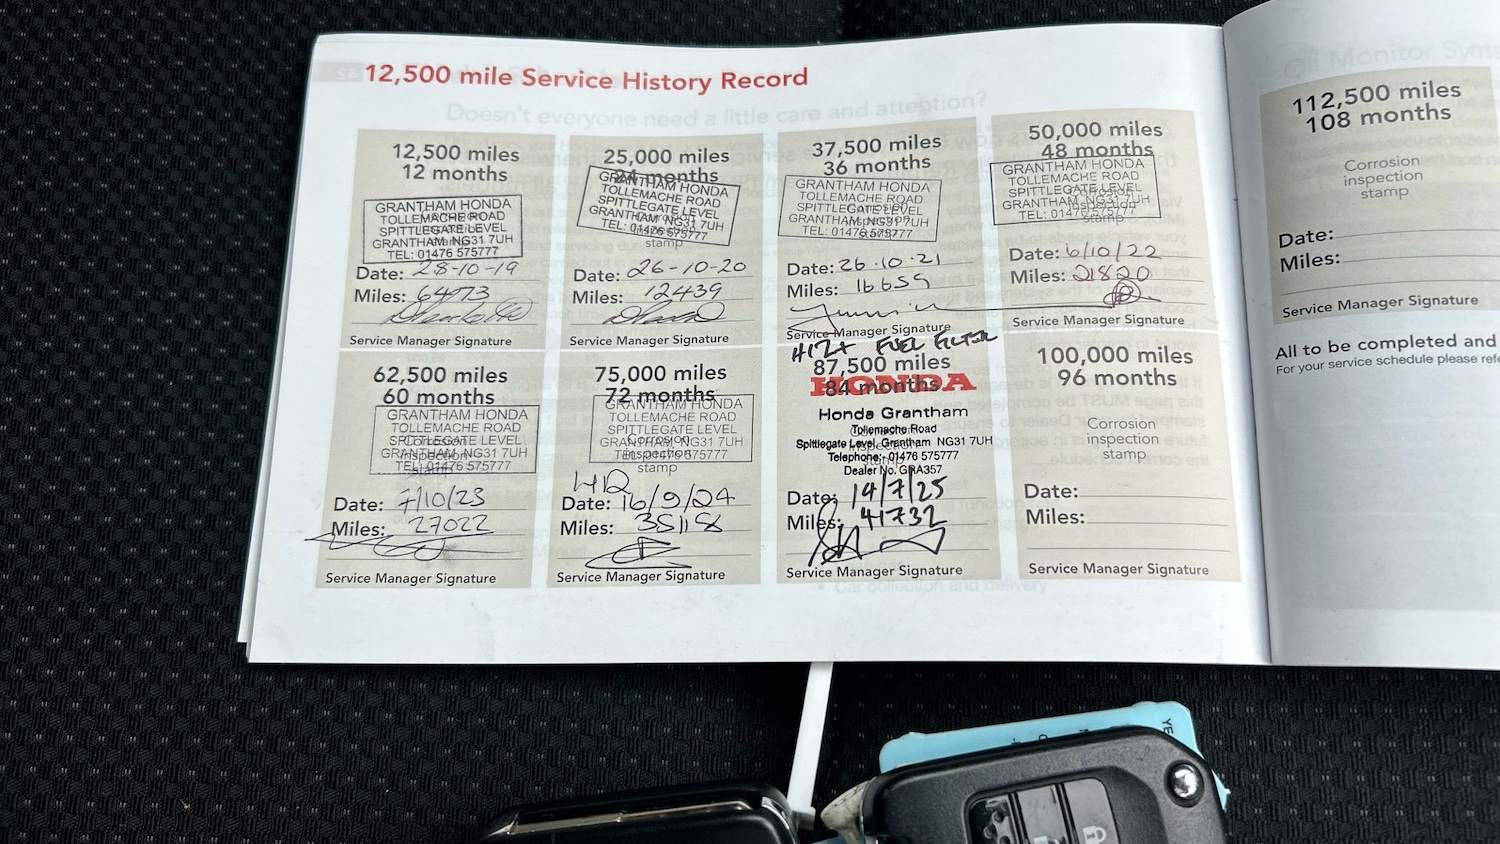 12,500 mile Service History Record
Doesn't everyone need a little care and attention?
12,500 miles
12 months
GRANTHAM HONDA
TOLLEMACHE ROAD
SPITTLEGATE LEVEL
GRANTHAM NG31 7UH
TEL: 01476 575777
Date: 28-10-19
Miles: 6473
Service Manager Signature
25,000 miles
24 months
GRANTHAM HONDA
TOLLEMACHE ROAD
SPITTLEGATE LEVEL
GRANTHAM, NG31 7UH
TEL: 01476 575777
stamp
Date: 26-10-20
Miles: 12439
Service Manager Signature
37,500 miles
36 months
GRANTHAM HONDA
TOLLEMACHE ROAD
SPITTLEGATE LEVEL
GRANTHAM, NG31 7UH
TEL: 01476 575777
Date: 26.10.21
Miles: 16659
Service Manager Signature
50,000 miles
48 months
GRANTHAM HONDA
TOLLEMACHE ROAD
SPITTLEGATE LEVEL
GRANTHAM NG31 7UH
TEL: 01476 575777
Date: 6/10/22
Miles: 21820
Service Manager Signature
62,500 miles
60 months
GRANTHAM HONDA
TOLLEMACHE ROAD
SPITTLEGATE LEVEL
GRANTHAM, NG31 7UH
TEL: 01476 575777
Date: 7/10/23
Miles: 27022
Service Manager Signature
75,000 miles
72 months
GRANTHAM HONDA
TOLLEMACHE ROAD
SPITTLEGATE LEVEL
GRANTHAM, NG31 7UH
TEL: 01476 575777
stamp
Date: 16/9/24
Miles: 35118
Service Manager Signature
FUEL FILTER
87,500 miles
84 months
HONDA
Honda Grantham
Tollemache Road
Spittlegate Level, Grantham NG31 7UH
Telephone: 01476 575777
Dealer No. GRA357
Date: 14/7/25
Miles: 41732
Service Manager Signature
100,000 miles
96 months
Corrosion
inspection
stamp
Date:
Miles:
Service Manager Signature
112,500 miles
108 months
Corrosion
inspection
stamp
Date:
Miles:
Service Manager Signature
All to be completed and
For your service schedule please